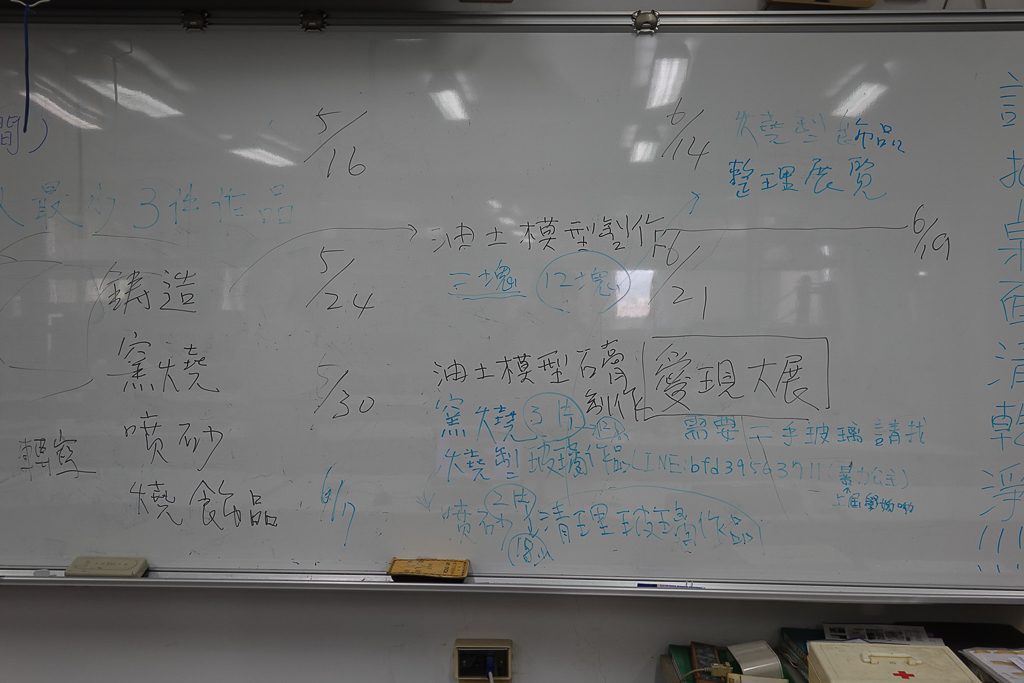 間)
最少3件作品
鑄造
窯燒
噴砂
燒飾品
5/16
5/24
5/30
6/7
油土模型製作
三塊 12塊
油土模型石膏
製作
窯燒 3片
燒型玻璃作品
噴砂 2片 清理玻璃作品
6/14
飾品
整理展覽
6/21
6/19
愛現大展
需要二手玻璃請找
LINE:bfd39563711
桌面清乾淨!!!